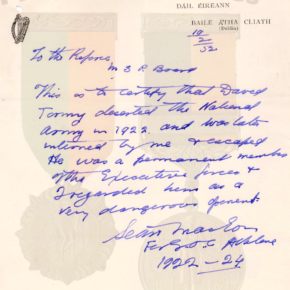 DÁIL ÉIREANN
BAILE ÁTHA CLIATH
(Dublin)
18
2
52
To the Referee
M S P Board
This is to certify that David
Tormy deserted the National
Army in 1922, and was later
interned by me & escaped
He was a permanent member
of the Executive forces &
I regarded him as a
very dangerous oponent.
Seán MacEoin
Athlone
1922 – 24